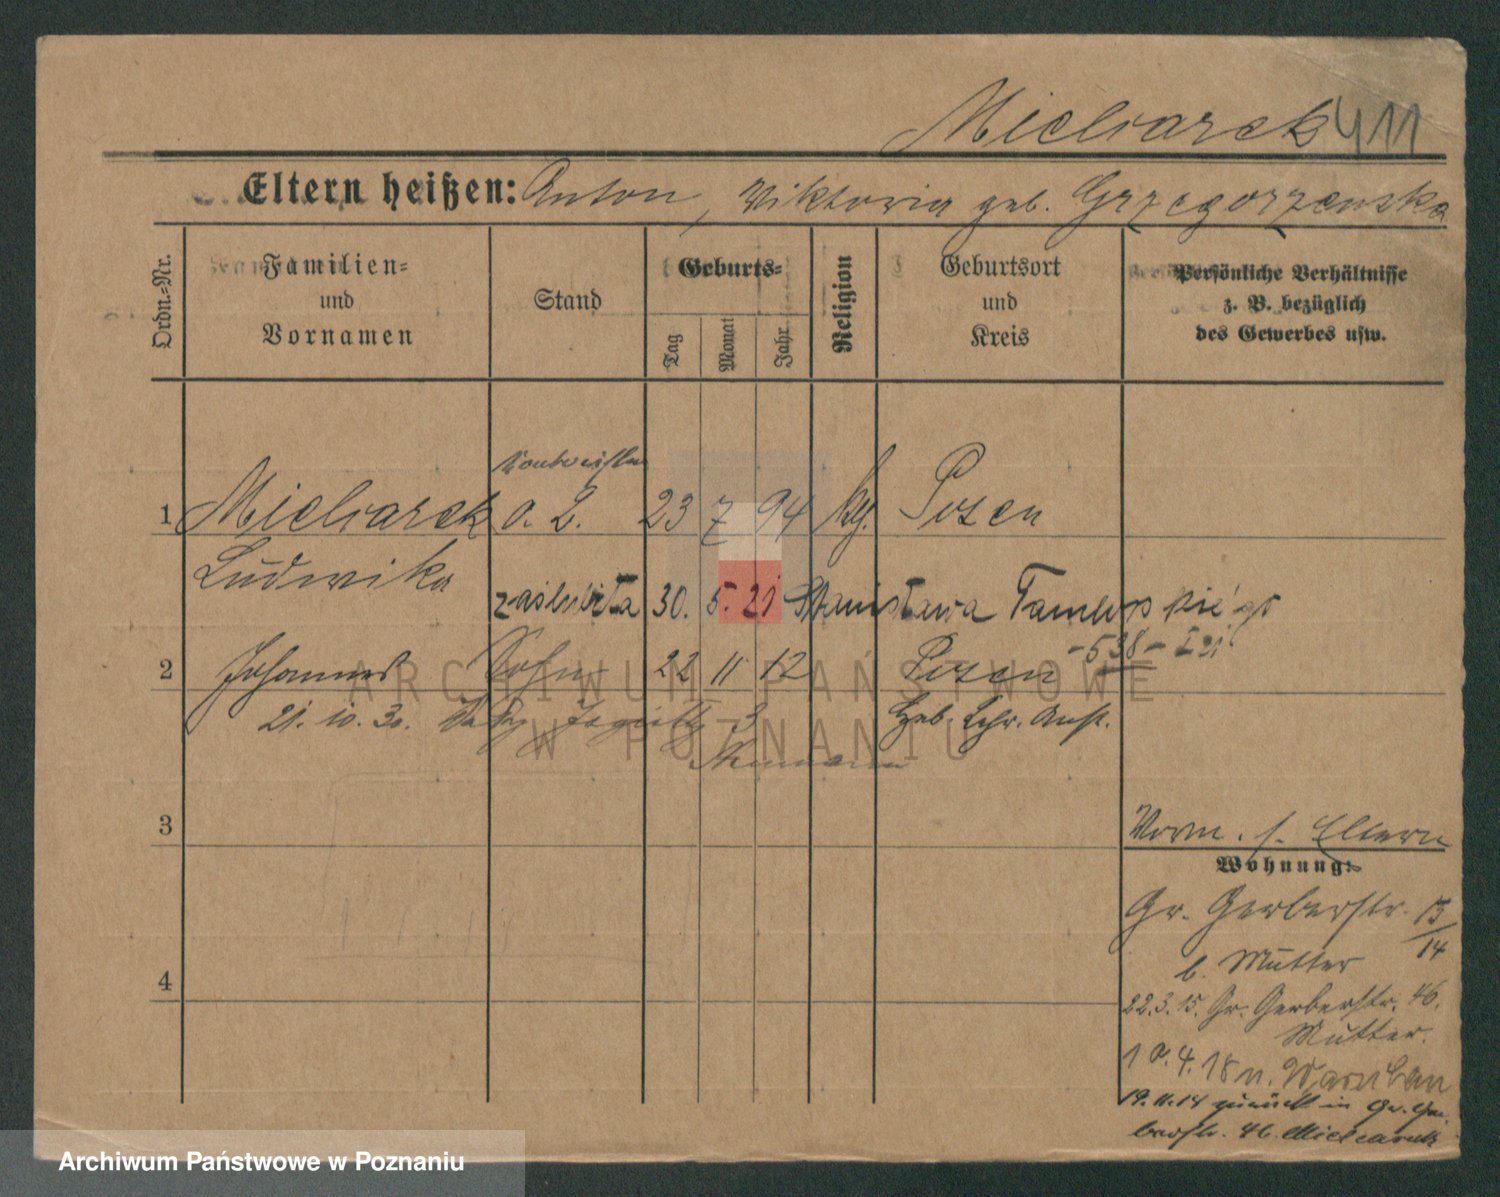 Mielcarek 411
Eltern heißen: Anton, Viktoria geb. Grzegorzewska
Ordn.-Nr.
Familien=
und
Vornamen
Stand
Geburts=
Tag
Monat
Jahr
Religion
Geburtsort
und
Kreis
Persönliche Verhältnisse
z. B. bezüglich
des Gewerbes usw.
1 Mielcarek o. L. 23 7 94 kg. Posen
Ludwika
zaślubiła 30. 5. 21 Stanisława
-538- I 21
2 Johannes Sohn 22 11 12 Posen
ARCHIWUM PAŃSTWOWE
21. 10. 30. 3 Heb. Lehr. Anst.
W POZNANIU
3
Vorm. s. Eltern
Wohnung:
Gr. Gerberstr. 13/14
b. Mutter
4
22.3.15. Gr. Gerberstr. 46.
Mutter.
10.4.18 n.
zurück in Gr. Ger-
berstr. 46. Mielcarek
Archiwum Państwowe w Poznaniu